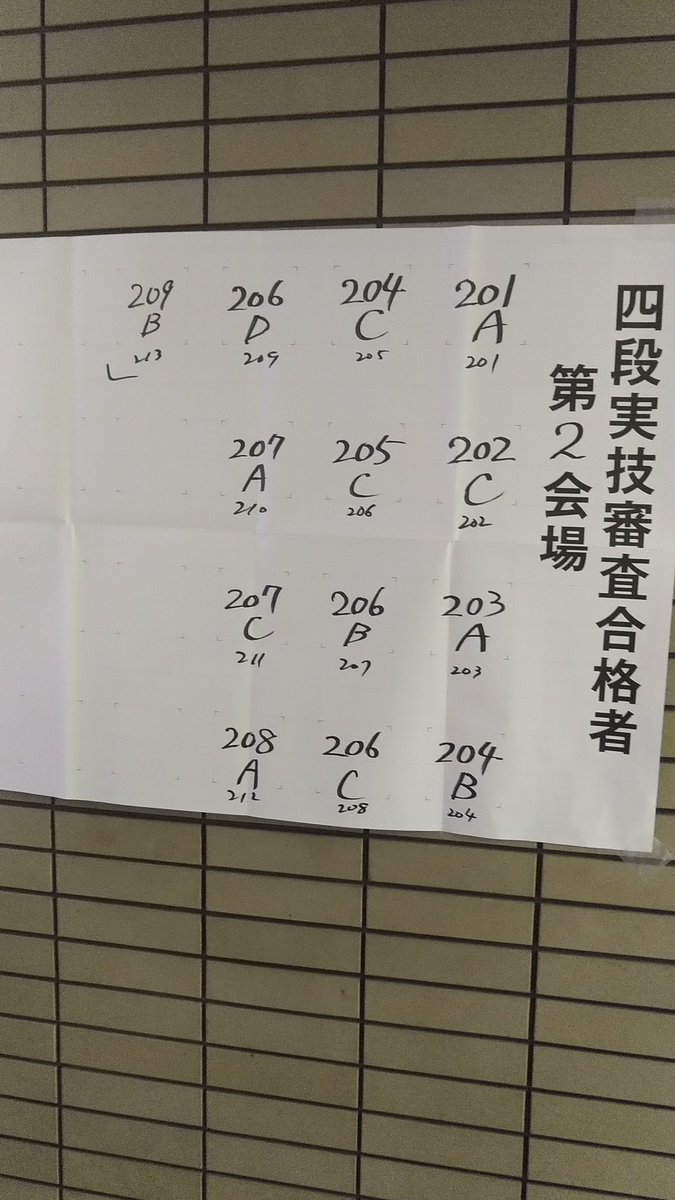 四段実技審査合格者
第2会場
201
A
201
202
C
202
203
A
203
204
B
204
204
C
205
205
C
206
206
B
207
206
C
208
206
D
209
207
A
210
207
C
211
208
A
212
209
B
213